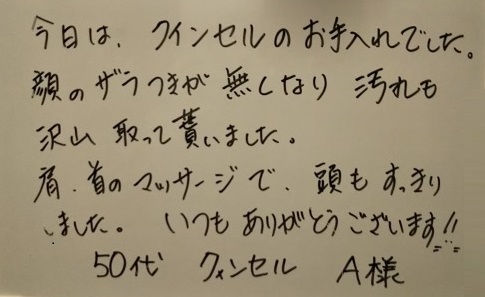 今日は、クインセルのお手入れでした。
顔のザラつきが無くなり 汚れも
沢山 取って貰いました。
肩、首のマッサージで、頭もすっきり
しました。 いつもありがとうございます!!
50代 クィンセル A様